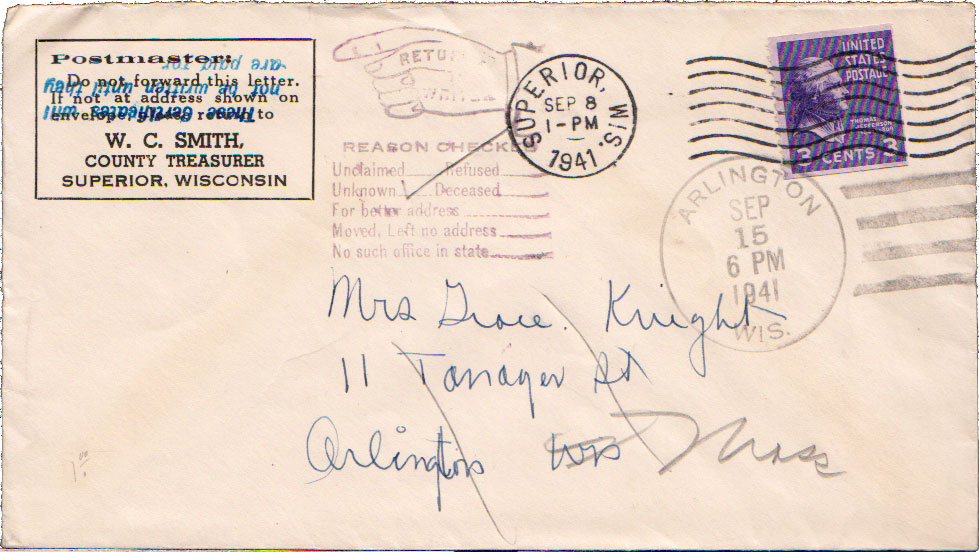 Postmaster:
Do not forward this letter.
If not at address shown on
envelope, please return to
W. C. SMITH,
COUNTY TREASURER
SUPERIOR, WISCONSIN
These certificates will
not be written until they
are paid for.
RETURN
WRITER
REASON CHECKED
Unclaimed Refused
Unknown Deceased
For better address
Moved, Left no address
No such office in state
SUPERIOR, WIS.
SEP 8
1-PM
1941
UNITED
STATES
POSTAGE
THOMAS
JEFFERSON
3 CENTS 3
ARLINGTON
SEP
15
6 PM
1941
WIS.
Mrs Grace. Knight
11 Tanager St
Arlington Wis Mass
1.00